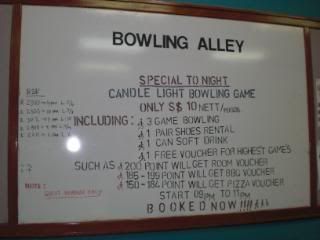 BOWLING ALLEY
SPECIAL TO NIGHT
CANDLE LIGHT BOWLING GAME
ONLY S$ 10 NETT/PERSON
INCLUDING: 3 GAME BOWLING
1 PAIR SHOES RENTAL
1 CAN SOFT DRINK
1 FREE VOUCHER FOR HIGHEST GAME'S
SUCH AS 200 POINT WILL GET ROOM VOUCHER
185 - 199 POINT WILL GET BBQ VOUCHER
150 - 184 POINT WILL GET PIZZA VOUCHER
START 09PM TO 11PM
BOOKED NOW !!!!